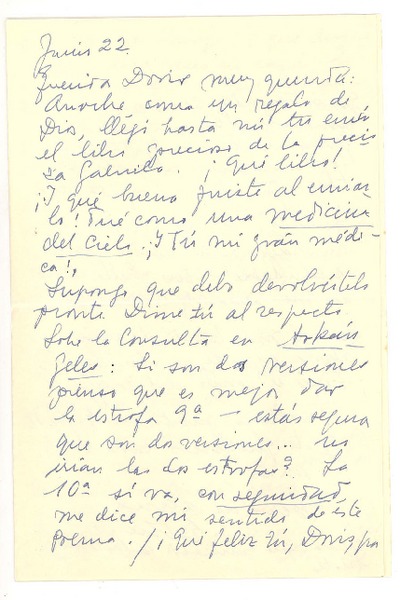 Junio 22.
Querida Doris muy querida:
Anoche como un regalo de
Dios, llegó hasta mí tu envío
el libro precioso de la preció-
sa Gabriela. ¡Qué libro!
¡Y qué buena fuiste al enviar-
lo! Fué como una medicina
del cielo. ¡Y Tú mi gran médi-
ca!,
Supongo que debo devolvértelo
pronto. Dime tú al respecto
Sobre la Consulta en Arkán
geles: Si son dos versiones
pienso que es mejor dar
la estrofa 9ª — estás segura
que son dos versiones... no
irían las dos estrofas? La
10ª sí va, con seguridad,
me dice mi sentido de este
poema. / ¡Qué feliz tú, Doris, pa